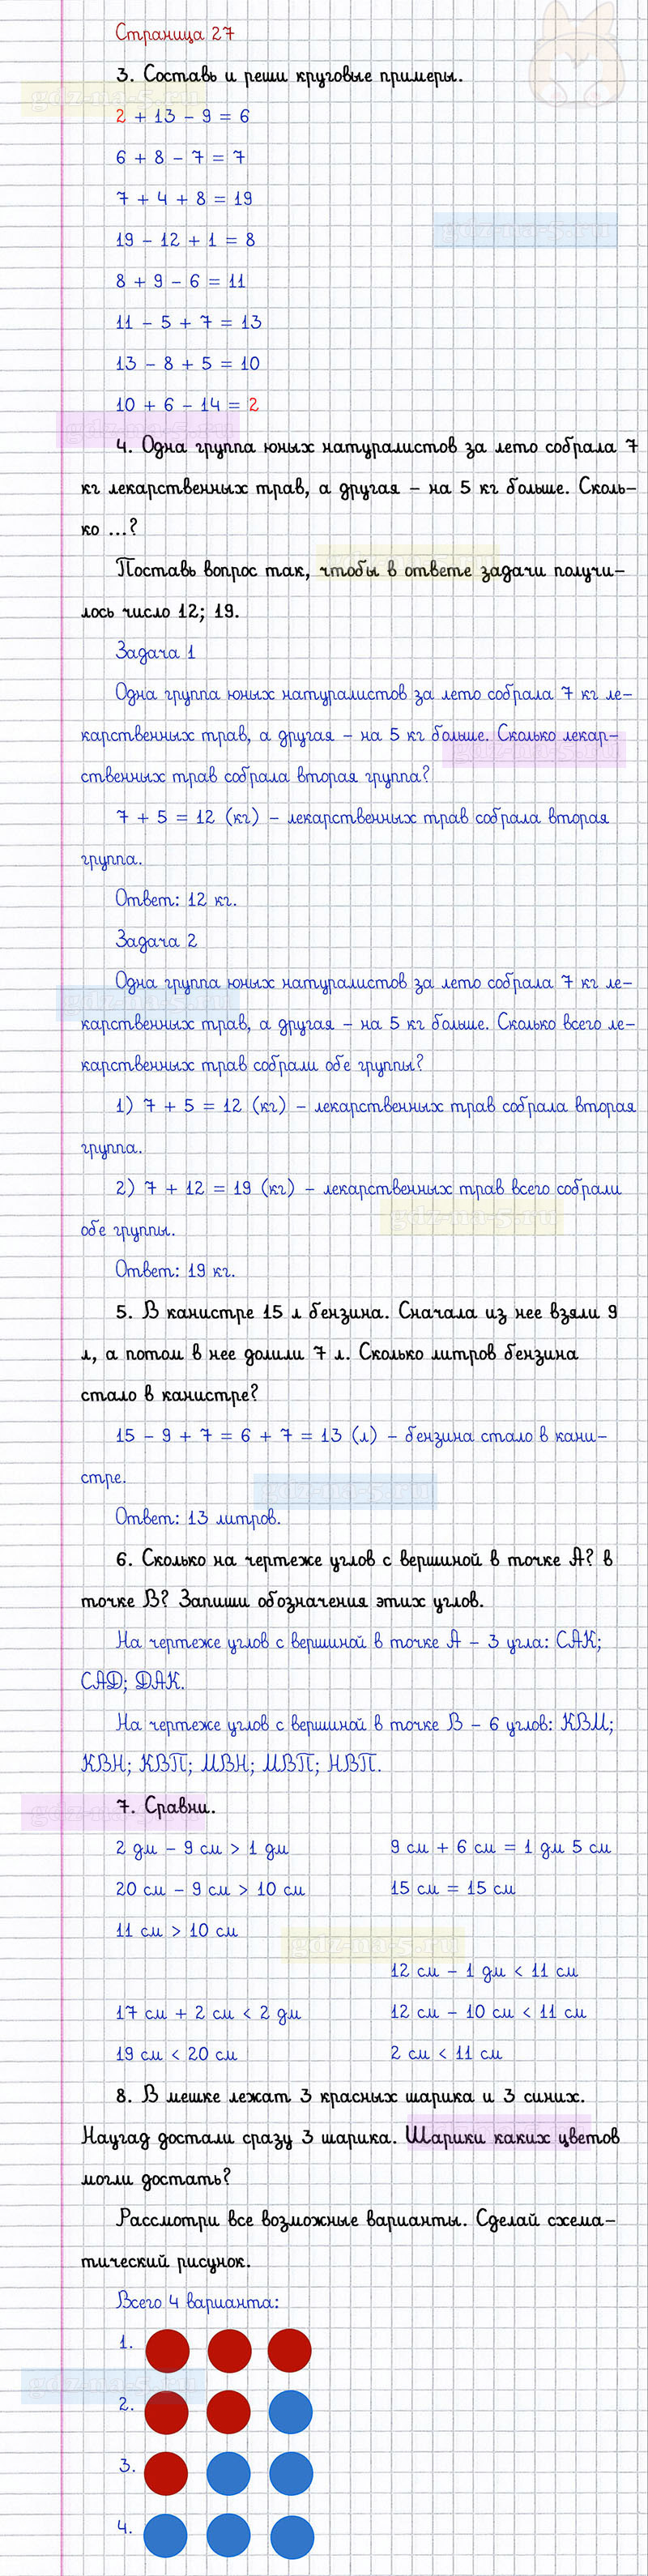 Страница 27
3. Составь и реши круговые примеры.
2 + 13 - 9 = 6
6 + 8 - 7 = 7
7 + 4 + 8 = 19
19 - 12 + 1 = 8
8 + 9 - 6 = 11
11 - 5 + 7 = 13
13 - 8 + 5 = 10
10 + 6 - 14 = 2
4. Одна группа юных натуралистов за лето собрала 7
кг лекарственных трав, а другая – на 5 кг больше. Сколь-
ко ...?
Поставь вопрос так, чтобы в ответе задачи получи-
лось число 12; 19.
Задача 1
Одна группа юных натуралистов за лето собрала 7 кг ле-
карственных трав, а другая – на 5 кг больше. Сколько лекар-
ственных трав собрала вторая группа?
7 + 5 = 12 (кг) – лекарственных трав собрала вторая
группа.
Ответ: 12 кг.
Задача 2
Одна группа юных натуралистов за лето собрала 7 кг ле-
карственных трав, а другая – на 5 кг больше. Сколько всего ле-
карственных трав собрали обе группы?
1) 7 + 5 = 12 (кг) – лекарственных трав собрала вторая
группа.
2) 7 + 12 = 19 (кг) – лекарственных трав всего собрали
обе группы.
Ответ: 19 кг.
5. В канистре 15 л бензина. Сначала из нее взяли 9
л, а потом в нее долили 7 л. Сколько литров бензина
стало в канистре?
15 - 9 + 7 = 6 + 7 = 13 (л) – бензина стало в кани-
стре.
Ответ: 13 литров.
6. Сколько на чертеже углов с вершиной в точке А? в
точке В? Запиши обозначения этих углов.
На чертеже углов с вершиной в точке А – 3 угла: САК;
САD; DАК.
На чертеже углов с вершиной в точке В – 6 углов: КВМ;
КВН; КВП; МВН; МВП; НВП.
7. Сравни.
2 дм - 9 см > 1 дм
20 см - 9 см > 10 см
11 см > 10 см
17 см + 2 см < 2 дм
19 см < 20 см
9 см + 6 см = 1 дм 5 см
15 см = 15 см
12 см - 1 дм < 11 см
12 см - 10 см < 11 см
2 см < 11 см
8. В мешке лежат 3 красных шарика и 3 синих.
Наугад достали сразу 3 шарика. Шарики каких цветов
могли достать?
Рассмотри все возможные варианты. Сделай схема-
тический рисунок.
Всего 4 варианта:
1.
2.
3.
4.
gdz-na-5.ru
gdz-na-5.ru
gdz-na-5.ru
gdz-na-5.ru
gdz-na-5.ru
gdz-na-5.ru
gdz-na-5.ru
gdz-na-5.ru
gdz-na-5.ru
gdz-na-5.ru
gdz-na-5.ru